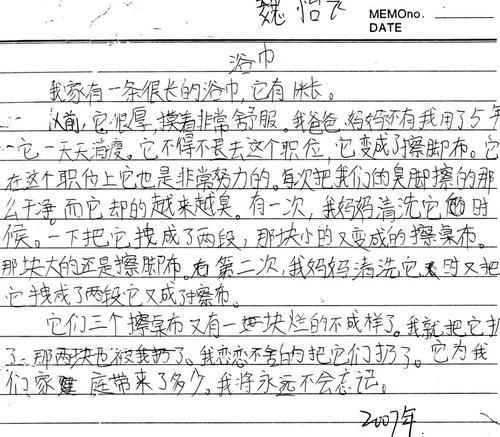 魏怡
MEMOno.
DATE
浴巾
我家有一条很长的浴巾,它有1米长。
以前,它很厚,摸着非常舒服。我爸爸、妈妈还有我用了5年
它一天天消瘦。它不得不退去这个职位,它变成了擦脚布。它
在这个职位上它也是非常努力的。每次把我们的臭脚擦的那
么干净。而它却的越来越臭。有一次,我妈妈清洗它的时
候。一下把它拽成了两段,那块小的又变成的擦桌布。
那块大的还是擦脚布。第二次,我妈妈清洗它时又把
它拽成了两段它又成了擦布。
它们三个擦桌布又有一块烂的不成样了。我就把它扔
了。那两块也被我扔了、我恋恋不舍的把它们扔了。它为我
们家庭带来了多少。我将永远不会忘记。
2007年